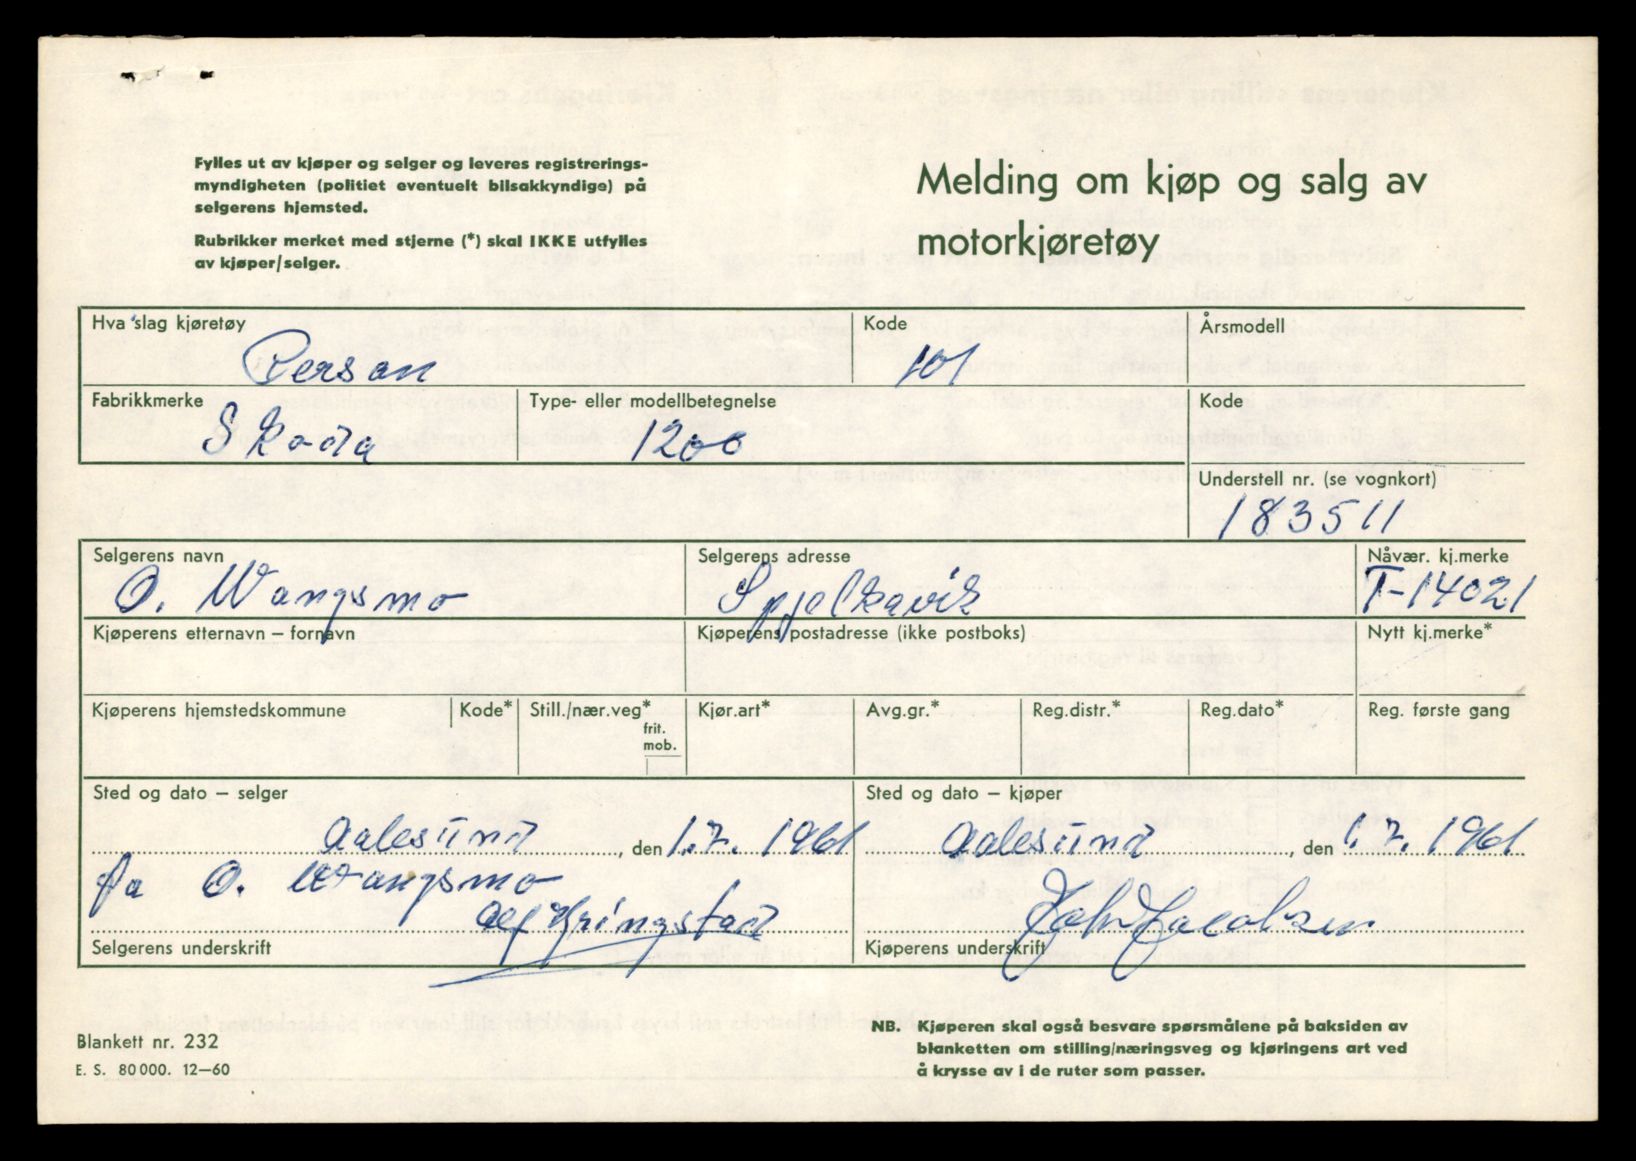 Fylles ut av kjøper og selger og leveres registrerings-
myndigheten (politiet eventuelt bilsakkyndige) på
selgerens hjemsted.
Rubrikker merket med stjerne (*) skal IKKE utfylles
av kjøper/selger.
Melding om kjøp og salg av
motorkjøretøy
Hva slag kjøretøy
Kode
Årsmodell
Person
101
Fabrikkmerke
Type- eller modellbetegnelse
Kode
Skoda
1200
Understell nr. (se vognkort)
183511
Selgerens navn
Selgerens adresse
Nåvær. kj.merke
O. Wangsmo
Spjelkavik
T-14021
Kjøperens etternavn – fornavn
Kjøperens postadresse (ikke postboks)
Nytt kj.merke*
Kjøperens hjemstedskommune
Kode*
Still./nær.veg*
frit.
mob.
Kjør.art*
Avg.gr.*
Reg.distr.*
Reg.dato*
Reg. første gang
Sted og dato – selger
Sted og dato – kjøper
Aalesund, den 1.7. 1961
Aalesund, den 1.7. 1961
O. Wangsmo
Alf Kringstad
John Jacobsen
Selgerens underskrift
Kjøperens underskrift
Blankett nr. 232
E. S. 80 000. 12—60
NB. Kjøperen skal også besvare spørsmålene på baksiden av
blanketten om stilling/næringsveg og kjøringens art ved
å krysse av i de ruter som passer.